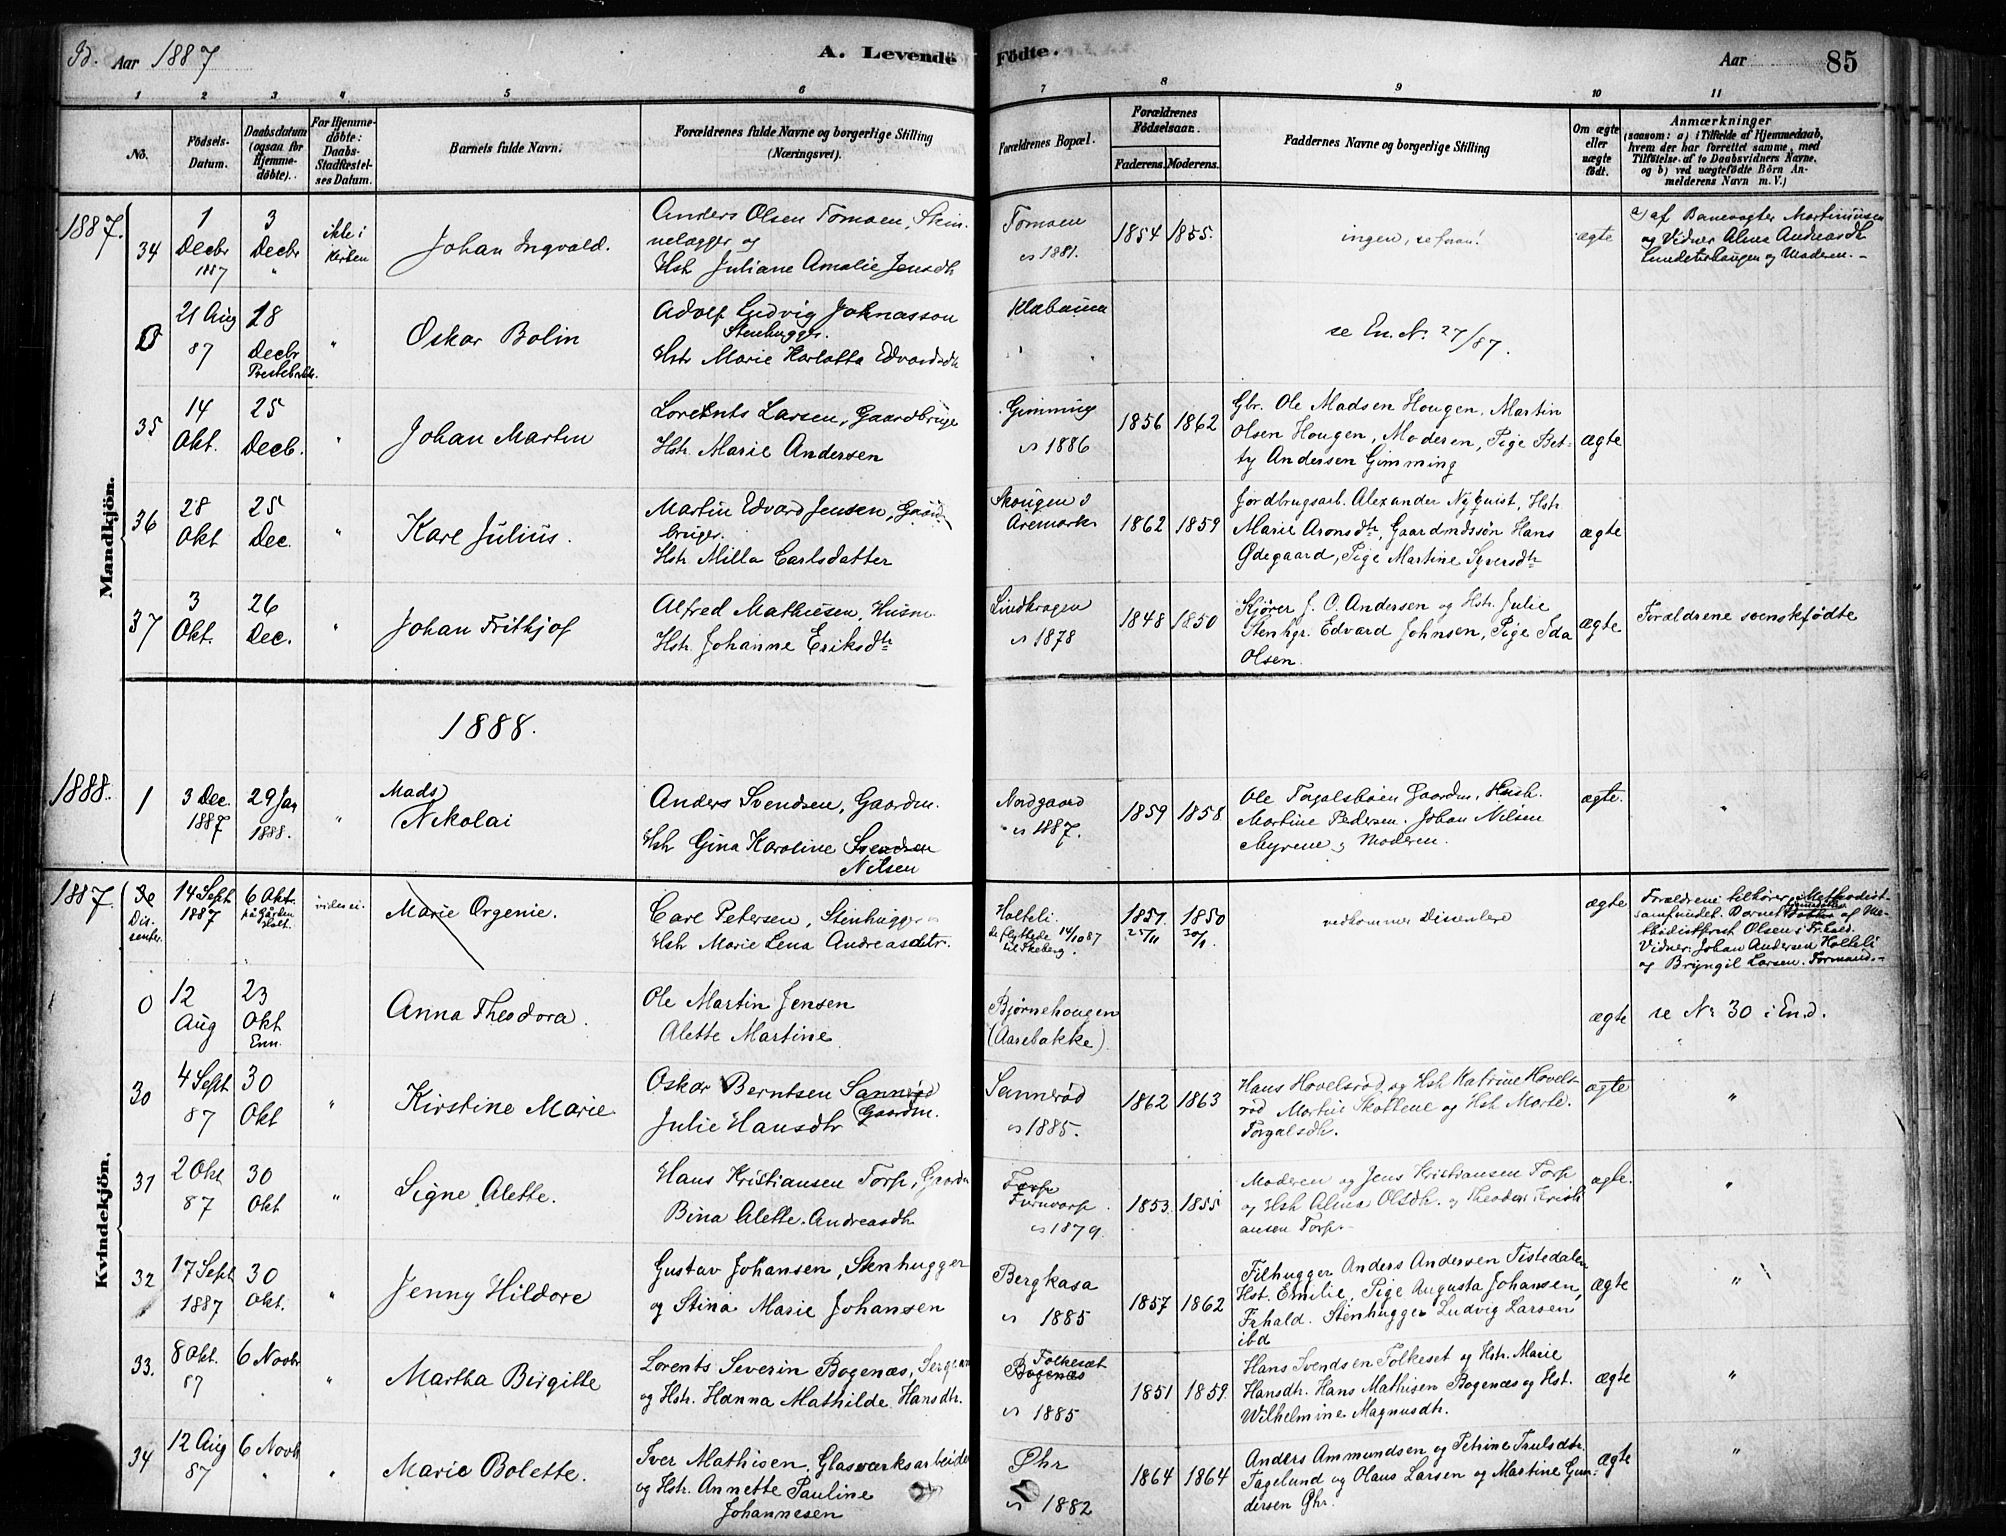 B. Aar 1887 A. Levende Födte. Aar 85
1 2 3 4 5 6 7 8 9 10 11
No. Födsels-Datum. Daabsdatum (ogsaa for Hjemmedöbte). For Hjemmedöbte: Daabs-Stadfæstelses Datum. Barnets fulde Navn. Forældrenes fulde Navne og borgerlige Stilling (Næringsvei). Forældrenes Bopæl. Forældrenes Födselsaar. Faderens. Moderens. Faddernes Navne og borgerlige Stilling Om ægte eller uægte födt. Anmærkninger
(saasom: a) i Tilfælde af Hjemmedaab, hvem der har forrettet samme, med Tilföielse af to Daabsvidners Navne, og b) ved uægtefödte Börn Anmelderens Navn m. V.)
Mandkjön.
1887. 34 1 Decbr 1887 3 Decbr " ikke i kirken Johan Ingvald. Anders Olsen Tomoen,
og
Hst Juliane Amalie Jensdtr
Tomoen 1881. 1854 1855. ingen, se foran! ægte a) af Banevogter Martiniusen
og Vidner Alma Andreasdtr
og Moderen.
0 21 Aug 87 18 Decbr " Oskar Bolin Adolf Ludvig Johnasson
Stenhugger.
Hstr Marie Karlotta Edvardsdtr
se En. No. 27/87.
35 14 Okt. 25 Decb. " Johan Martin Lorents Larsen, Gaardbruger
Hstr. Marie Andersen
Gimming 1886 1856 1862 Gbr. Ole Madsen Hougen, Martin
Olsen Hougen, Moderen, Pige Bet-
ty Andersen Gimming
ægte
36 28 Okt 25 Dec. " Karl Julius. Martin Edvard Jensen, Gaard-
bruger.
Hstr Milla Carlsdatter
Skougen i
Aremark 1862 1859 Jordbrugsarb. Alexander Nyquist, Hstr
Marie Aronsdtr, Gaardmdssøn Hans
Ødegaard, Pige Martine Syversdtr
ægte
37 3 Okt. 26 Dec. " Johan Frithjof Alfred Mathiesen, Husm.
Hstr Johanne Eriksdtr
Lindkragen
1878 1848 1850 Kjører J. O. Andersen og Hstr. Julie
Stenhgr. Edvard Johnsen, Pige Ida
Olsen.
ægte Forældrene svenskfødte
1888.
1888. 1 3 Dec. 1887 29 Jan 1888. " Mads
Nikolai Anders Svendsen, Gaardm.
Hstr Gina Karoline Svendsen
Nilsen
Nordgaard
1887. 1859 1858 Ole Torgalsbøen Gaardm, Hust.
Martine Pedersen. Johan Nilsen
Myrene, Moderen.
ægte. "
Kvindekjön.
1887 Dissenter. 14 Sept 1887 6 Okt. på Gården Holt. Marie Orgenie. Carl Petersen, Stenhugger
Hst Marie Lena Andreasdtr.
Holteli
de flyttede 14/10 87
til Skeberg. 1851 25/11 1850 30/1 vedkommer Dissentere ægte Forældrene tilhører Methodist-
samfundet. Barnet af Me-
thodistprest Olsen i Fr.hald.
Vidner: Johan Andersen Holteli
og Bryngil Larsen.
0 12 Aug 23 Okt Enn. Anna Theodora. Ole Martin Jensen
Alette Martine
Bjørnehougen
(Aarebakke) ægte se No 30 i End.
30 4 Sept 87 30 Okt " Kirstine Marie Oskar Berntsen Sannerød
Julie Hansdtr Gaardm.
Sannerød
1885. 1862 1863 Hans Hovelsrød og Hst Katrine Hovels-
rød Martin Skottene og Hst Marte
Torgalsdtr.
ægte "
31 2 Okt 87 30 Okt " Signe Alette. Hans Kristiansen Torp, Gaardm
Bina Alette Andreasdtr
Torp
1879. 1853 1855 Moderen og Jens Kristiansen Torp
og Hst Alma Olsdtr. og Theodor Kristi-
ansen Torp.
ægte. "
32 17 Sept 1887 30 Okt. " Jenny Hildore Gustav Johansen, Stenhugger
og Stina Marie Johansen
Bergkasa
1885 1857 1862 Filhugger Anders Andersen Tistedalen,
Hst. Emilie, Pige Augusta Johansen,
Frhald. Stenhugger Ludvig Larsen
ibd
ægte "
33. 8 Okt. 87 6 Novbr " Martha Birgitte Lorents Severin Bogenæs, Sergeant
og Hstr. Hanna Mathilde Hansdtr.
Folkesæt
Bogenæs
1885 1851 1859. Hans Svendsen Folkeset og Hstr. Marie
Hansdtr. Hans Mathisen Bogenæs og Hst.
Wilhelmine Magnusdtr.
ægte "
34 12 Aug 87 6 Novbr " Marie Bolette. Iver Mathisen, Glasværksarbeider
og Hstr. Annette Pauline
Johannesen
Øhr
1882 1864 1864 Anders Ammundsen og Petrine Trulsdtr.
Tagelund og Olaus Larsen og Martine Gun-
dersen Øhr.
ægte "